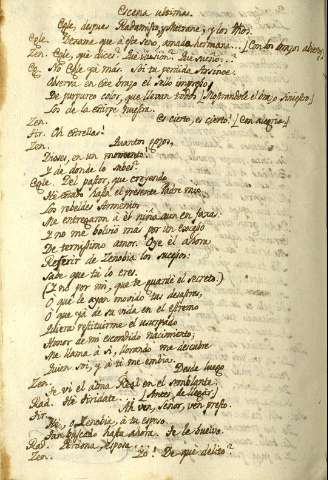 Escena ultima.
Egle, despues Radamisto, y Mitrane, y los dhos.
Egle. Dexame que a este seno, amada hermana... [Con los brazos abiertos]
Zen. Egle, que dices? Que vision? Que sueño...?
Eg. No Egle ya más. Soi tu perdida Arsinoe.
Observa en este brazo el sello impreso
De purpureo color, que llevan todos [Mostrandole el brazo siniestro]
Los de la estirpe nuestra.
Zen. Es cierto, es cierto! [Con alegria]
Tir. Oh estrellas!
Zen. Quantos gozos,
Dioses, en un momento!
Y de donde lo sabes?
Egle. Del pastor, que creyendo
hasta el presente Padre mio
Los rebeldes Armenios
Me entregaron a él niña aun en faxas
Y no me bolvió mas por un exceso
De ternisimo amor. Oye él ahora
Referir de Zenobia los sucesos:
Sabe que tù lo eres.
(Y no por mi, que te guardé el secreto.)
O que le ayan movido tus desastres,
O que yá de su vida en el extremo
Quiera restituirme el usurpado
Honor de mi escondido nacimiento,
Me llama á si, llorando me descubre
Quien soi, y á ti me embia.
Zen. Desde luego
Te vi el alma Real en el semblante.
Rad. He Tiridate. [Antes de llegar]
Tir. Ah ven, Señor, ven presto.
o Zenobia, à tu esposo
hasta ahora. Te le buelvo.
Rad. Perdona, esposa.
Zen. Yo! De que delito?